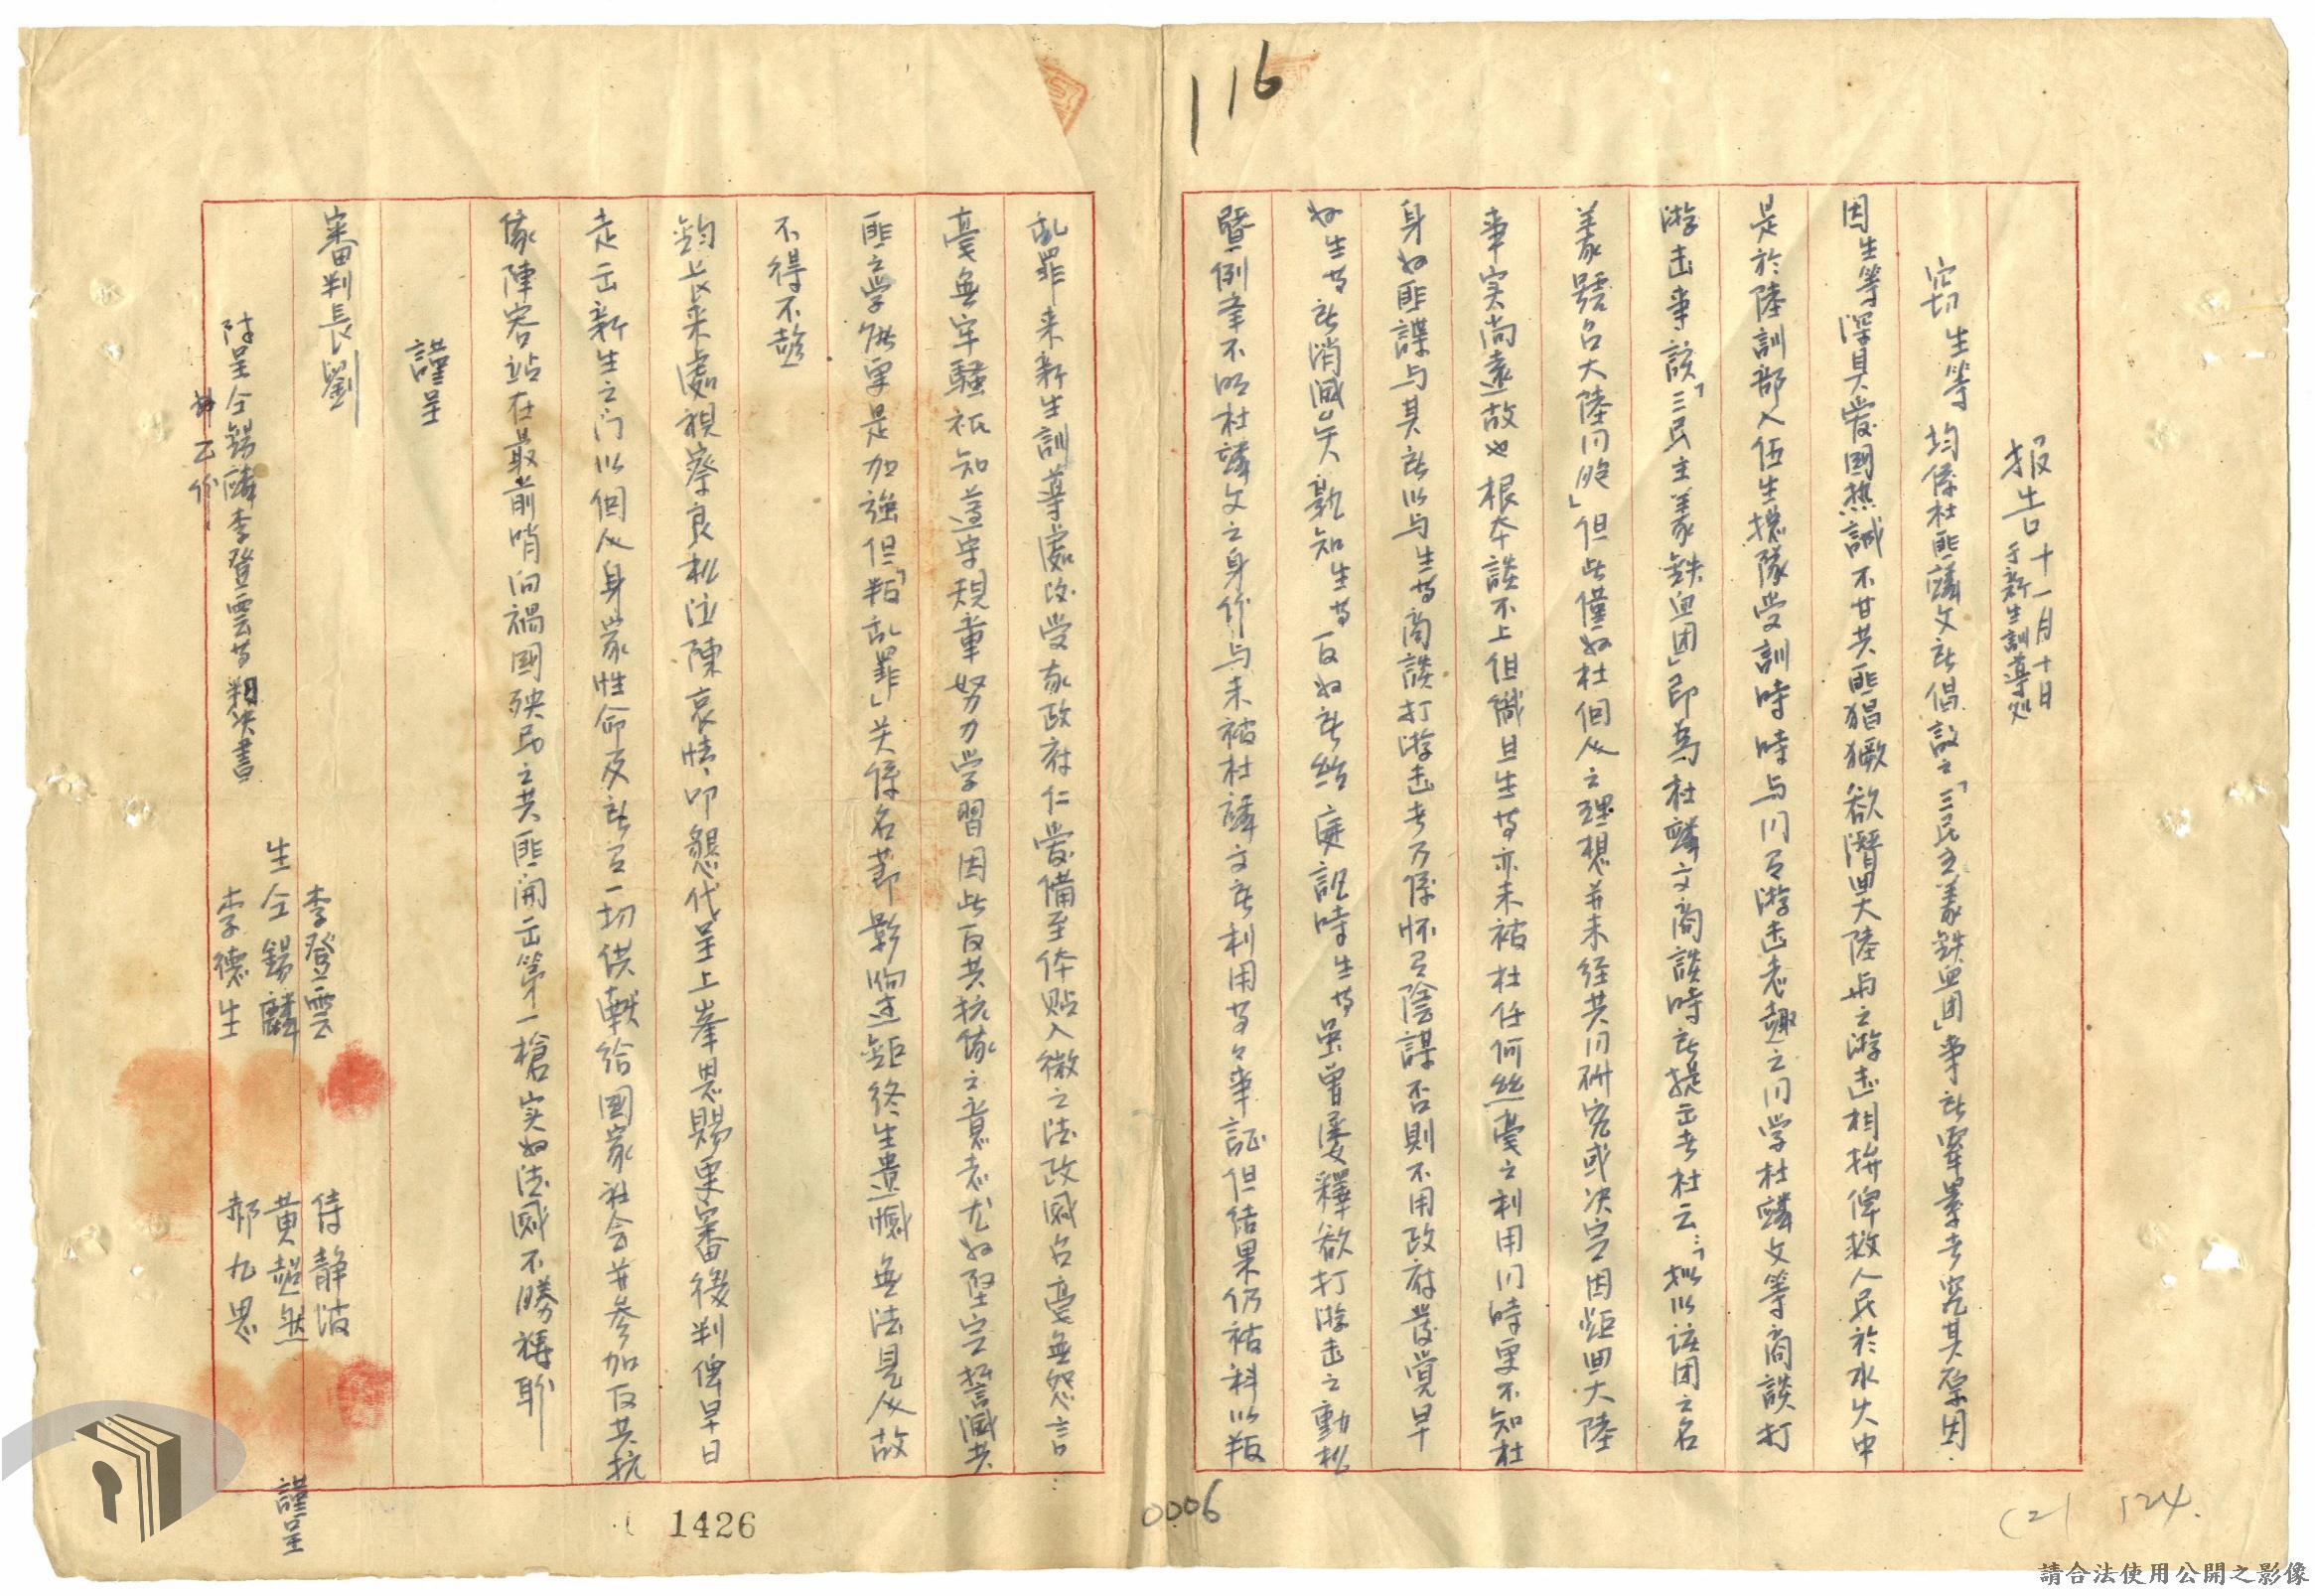 116
報告 十一月十日
于新生訓導処
窃生等均係杜匪麟文所倡設之「三民主義鉄血团」事所牽累者究其原因
因生等深具爱國热誠不甘共匪猖獗欲潛回大陸与之游击相拚俾救人民於水火中
是於陸訓部入伍生搃隊受訓時時与同有游击志趣之同学杜麟文等商談打
游击事該「三民主義鉄血团」即為杜麟文商談時所提出者杜云：「拟以該团之名
義號召大陸同胞」但此僅如杜個人之理想并未经共同研究或决定因距回大陸
事实尚遠故也根本談不上組織且生等亦未被杜任何絲毫之利用同時更不知杜
身如匪諜与其所以与生等商談打游击者乃係怀有陰謀否則不用政府發覺早
如生等所消滅矣孰知生等反如所 庭訊時生等虽曾屡釋欲打游击之動机
暨一例举不明杜麟文之身份与未被杜麟文所利用等々事証但结果仍被科以叛
乱罪来新生訓導處改受教政府仁爱備至体贴入微之法政國召毫無怨言…
毫無牢騷衹知遵守規章努力学習因此反共抗俄之意志尤如堅定誓滅共
匪之学術更是加強但「叛乱罪」关係名節影响过鉅终生遺憾無法見人故
不得不趁
鈞长来處視察良机泣陳哀情叩懇代呈上峯恩賜更審後判俾早日
走出新生之门以個人身家性命及所有一切供献给國家社会并參加反共抗
俄陣容站在最前哨向禍國殃民之共匪開出第一槍实如法國不勝禱盼
謹呈
審判長劉
附呈仝錫麟李登雲等判决書
乙份
李登雲
生仝錫麟
李德生
侍静波
黄超然
郝九思
謹呈
1426
0006
(2) 124.
請合法使用公開之影像